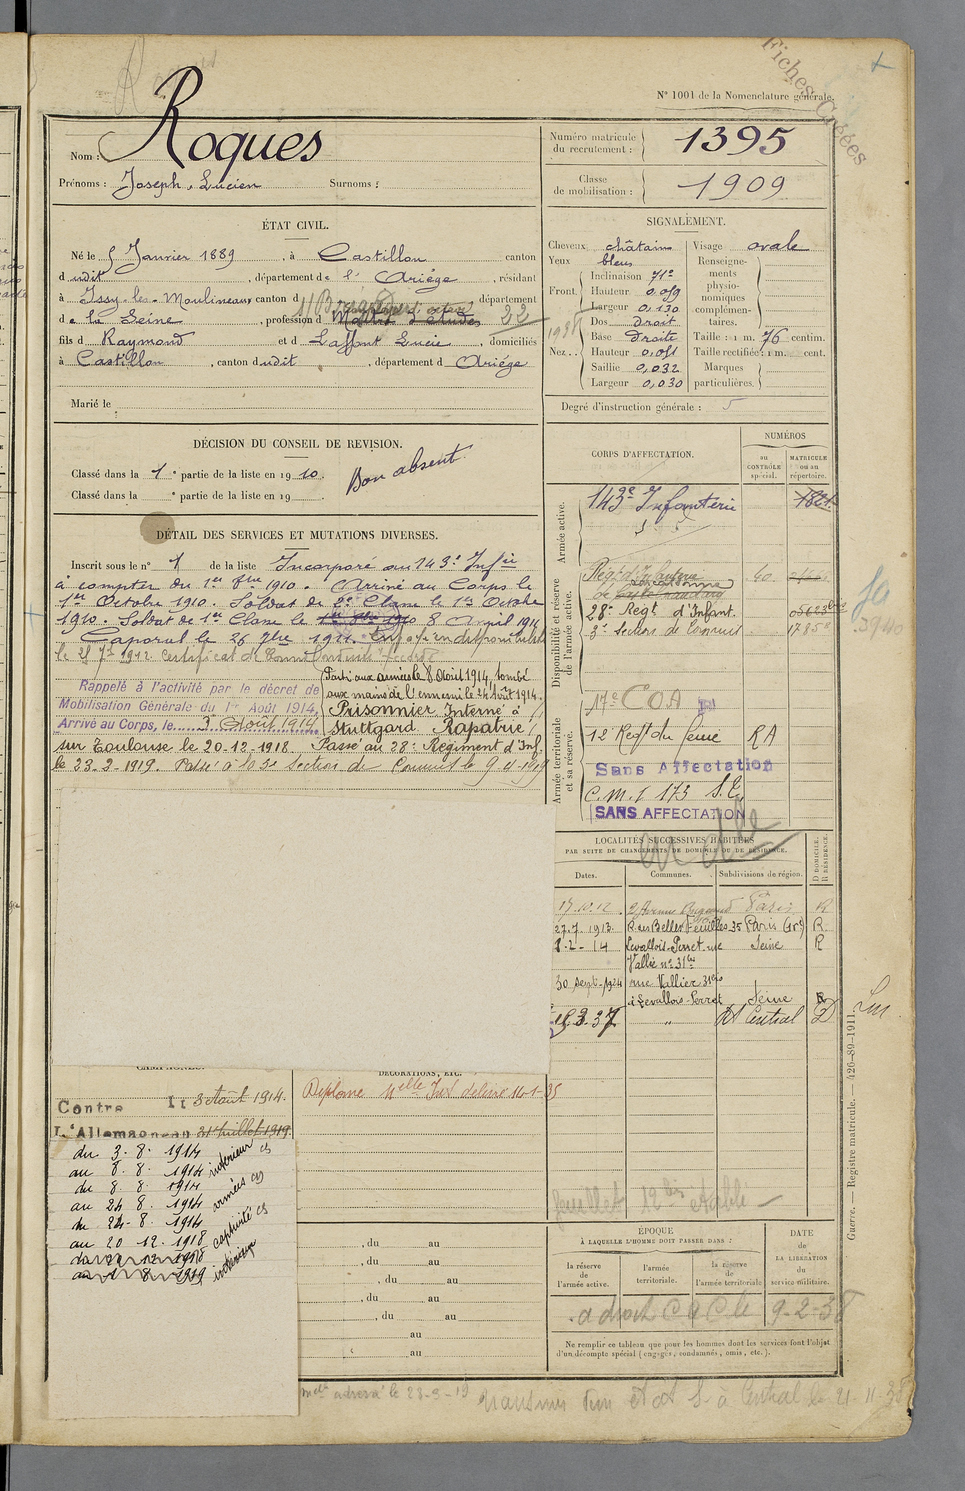 Fiches Créées
N° 1001 de la Nomenclature générale.
Nom : Roques
Prénoms : Joseph, Lucien Surnoms :
Numéro matricule du recrutement : 1395
Classe de mobilisation : 1909
ÉTAT CIVIL.
Né le 5 Janvier 1889, à Castillon canton
dudit, département de l'Ariège, résidant
à Issy-les-Moulineaux, canton d département
de la Seine, profession d 22
fils d Raymond et d Laffont Lucie, domiciliés
à Castillon, canton dudit, département d Ariège
Marié le
SIGNALEMENT.
Cheveux châtains Visage ovale
Yeux bleus
Front. Inclinaison
Hauteur 0,059
Largeur 0,130
Nez.. Dos droit
Base droite
Hauteur 0,051
Saillie 0,032
Largeur 0,030
Renseignements physionomiques complémentaires.
Taille : 1 m. 76 centim.
Taille rectifiée : 1 m. cent.
Marques particulières.
Degré d'instruction générale : 5
DÉCISION DU CONSEIL DE REVISION.
Classé dans la 1e partie de la liste en 1910. Bon absent.
Classé dans la e partie de la liste en 19
DÉTAIL DES SERVICES ET MUTATIONS DIVERSES.
Inscrit sous le n° 1 de la liste Incorporé au 143e Inf ie
à compter du 1er 8bre 1910. Arrivé au Corps le
1er Octobre 1910. Soldat de 2e Classe le 1er Octobre
1910. Soldat de 1er Classe le 8 Avril 1911
Caporal le 26 9bre 1911. Envoyé en disponibilité
le 25 7bre 1912 Certificat de bonne conduite accordé
Rappelé à l'activité par le décret de
Mobilisation Générale du 1er Août 1914,
Arrivé au Corps, le 3 Août 1914
Parti aux armées le 8 Août 1914, tombé
aux mains de l'ennemi le 24 Août 1914
Prisonnier Interné à
Stuttgard Rapatrié
sur Toulouse le 20-12-1918. Passé au 28e Régiment d'Inf.
le 23-2-1919. Passé à la 3e Section de Commis le 9-4-1919
CORPS D'AFFECTATION.
NUMÉROS
au CONTRÔLE spécial.
MATRICULE ou au répertoire.
Armée active.
143e Infanterie
Disponibilité et réserve de l'armée active.
Régt d'Infanterie
28e Regt d'Infant.
3e Section de Commis
Armée territoriale et sa réserve.
17e COA
12e Regt du Génie RA
Sans Affectation
C.M.I 173 S.E.
SANS AFFECTATION
LOCALITÉS SUCCESSIVES HABITÉES
PAR SUITE DE CHANGEMENTS DE DOMICILE OU DE RÉSIDENCE.
Dates. Communes. Subdivisions de région. D DOMICILE. R RÉSIDENCE.
17.10.12 Paris R
27.7.1913 R. des Belles Feuilles 35 Paris R.
1-2-14 Levallois-Perret rue Seine R
Vallier n° 31 bis
30 Sept. 1924 rue Vallier 31 bis
à Levallois-Perret Seine R
15.3.37 " Central D
CAMPAGNES.
Contre
L'Allemagne
3 Août 1914.
au 31 Juillet 1919.
du 3. 8. 1914
au 8. 8. 1914 intérieur CS
du 8. 8. 1914
au 24 8. 1914 armées CD
du 24-8. 1914
au 20 12. 1918 captivité CS
du 21 12 1918
au 1 8 1919 intérieur
DÉCORATIONS, ETC.
Diplome délivré 14-1-35
, du au
, du au
, du au
, du au
, du au
au
au
feuillet 12 bis établi
ÉPOQUE
À LAQUELLE L'HOMME DOIT PASSER DANS :
la réserve de l'armée active.
l'armée territoriale.
la réserve de l'armée territoriale
DATE de LA LIBÉRATION du service militaire.
a droit C d C le 9-2-38
Ne remplir ce tableau que pour les hommes dont les services font l'objet
d'un décompte spécial (engagés, condamnés, omis, etc.).
Guerre. — Registre matricule. — 426-89-1911.
adressé le 23-9-19
à Central le 21-11-38